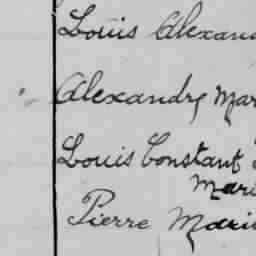 Louis Alexan
Alexandre Mar
Louis Constant
Mari
Pierre Mari